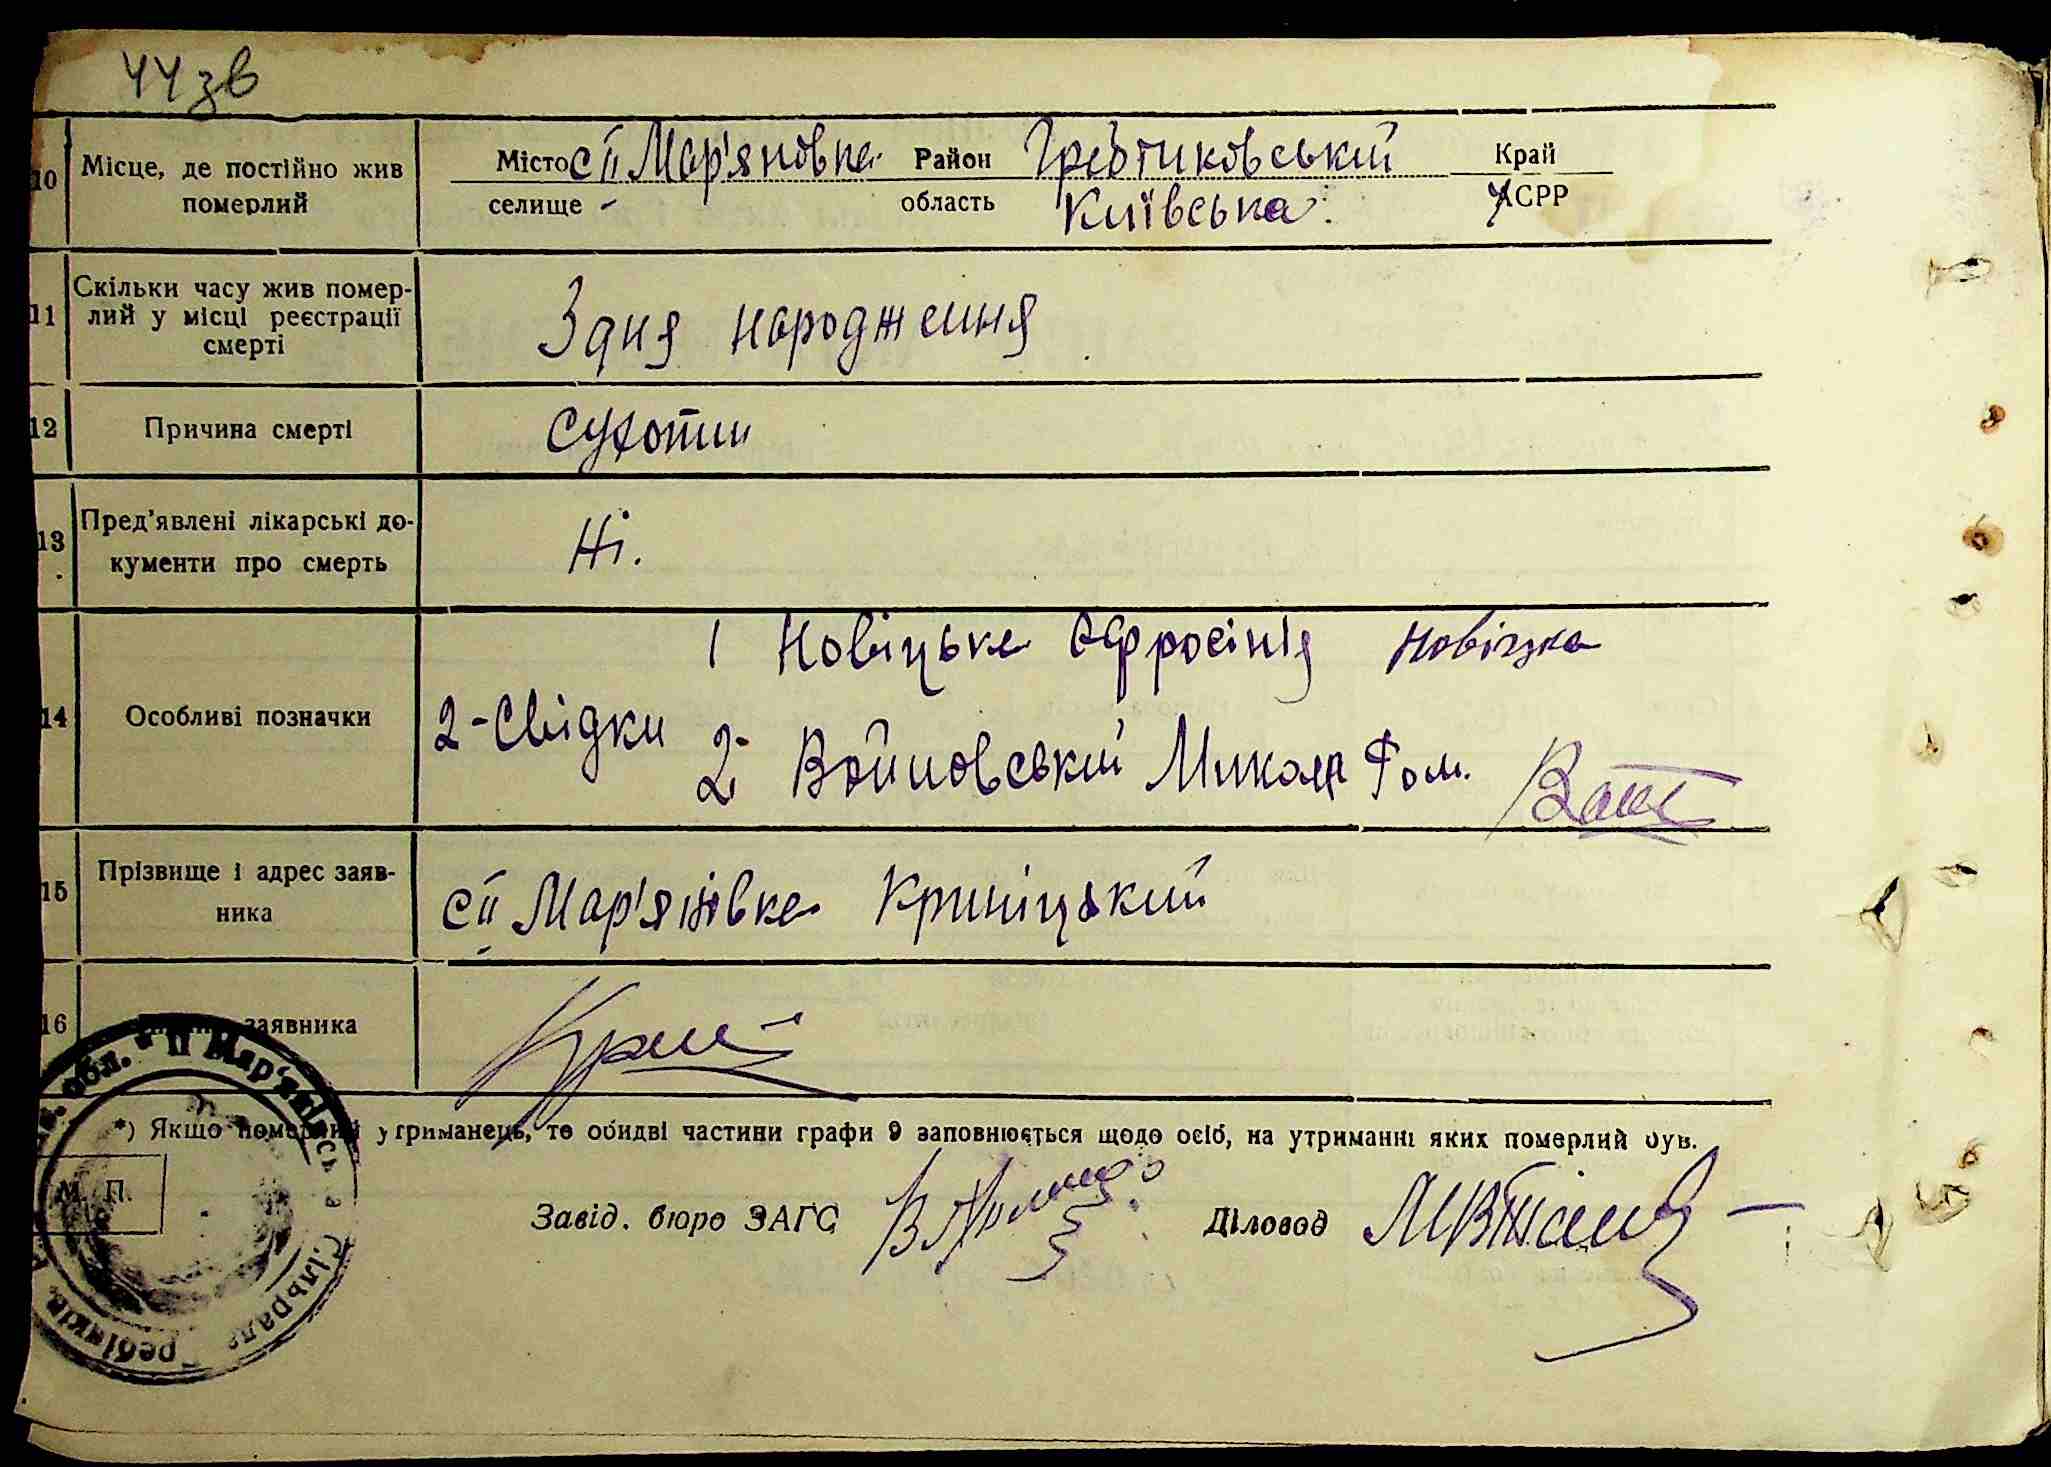 44 зв
10 Місце, де постійно жив Місто с ІІ Мар'яновка Район Гребінковський Край
померлий селище область Київська УСРР
11 Скільки часу жив помер-
лий у місці реєстрації З дня народження
смерті
12 Причина смерті Сухоти
13 Пред'явлені лікарські до-
кументи про смерть Ні.
1 Новіцька Єфросінія Новіцка
14 Особливі позначки 2-Свідки 2 Войновський Микола Фом.
15 Прізвище і адрес заяв-
ника с ІІ Мар'янівка Криніцький
16 заявника
*) Якщо померлий утриманець, то обидві частини графи 9 заповнюється щодо осіб, на утриманні яких померлий був.
М. П.
Завід. бюро ЗАГС Діловод
обл. ІІ Мар'янівська Сільрада Гребінків.